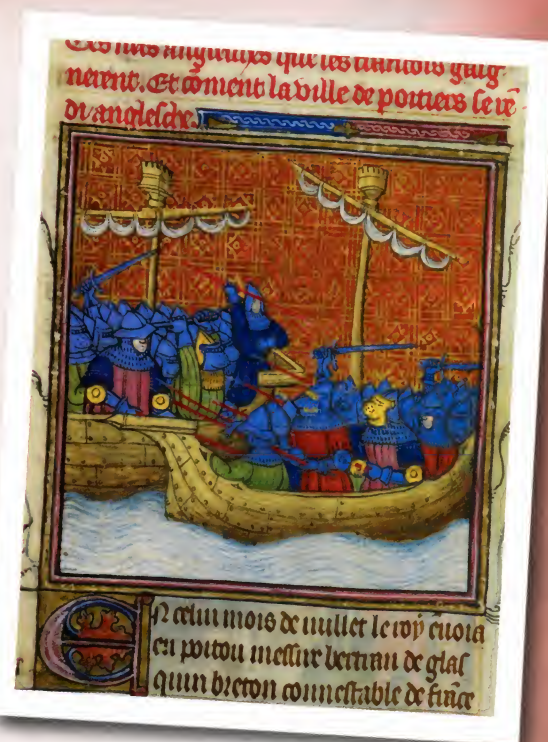 nes nefs angleiches que les francois gaig-
nerent. Et cõment la ville de poitiers se rẽ-
di anglesche.
En celui mois de iuillet le roy enuoia
en poitou messire bertran de glas
quin breton connestable de frãce